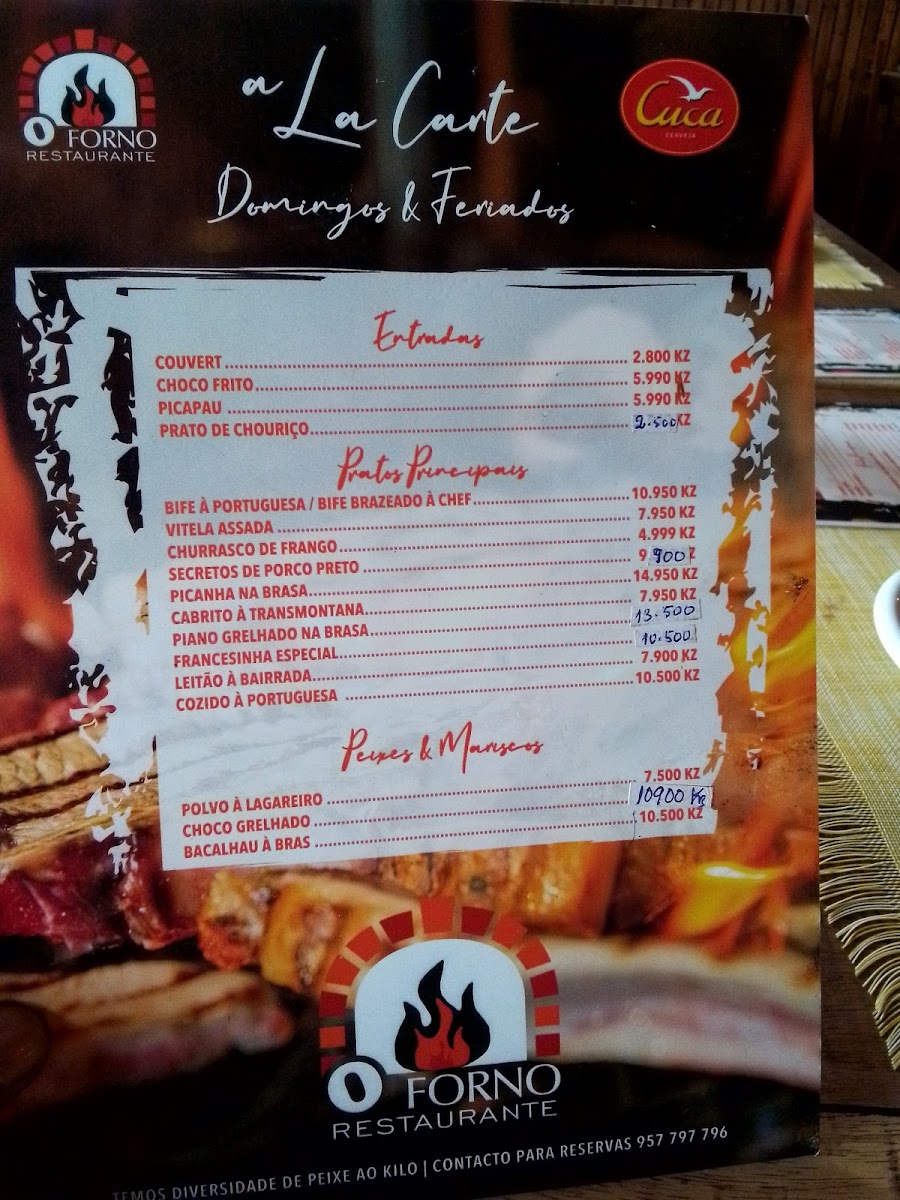 O FORNO
RESTAURANTE
a La Carte
Cuca
CERVEJA
Domingos & Feriados
Entradas
COUVERT 2.800 KZ
CHOCO FRITO 5.990 KZ
PICAPAU 5.990 KZ
PRATO DE CHOURIÇO 2.500 KZ
Pratos Principais
BIFE À PORTUGUESA / BIFE BRAZEADO À CHEF 10.950 KZ
VITELA ASSADA 7.950 KZ
CHURRASCO DE FRANGO 4.999 KZ
SECRETOS DE PORCO PRETO 9.900 Z
PICANHA NA BRASA 14.950 KZ
CABRITO À TRANSMONTANA 7.950 KZ
PIANO GRELHADO NA BRASA 13.500
FRANCESINHA ESPECIAL 10.500
LEITÃO À BAIRRADA 7.900 KZ
COZIDO À PORTUGUESA 10.500 KZ
Peixes & Mariscos
POLVO À LAGAREIRO 7.500 KZ
CHOCO GRELHADO 10900 Kz
BACALHAU À BRAS 10.500 KZ
O FORNO
RESTAURANTE
TEMOS DIVERSIDADE DE PEIXE AO KILO | CONTACTO PARA RESERVAS 957 797 796